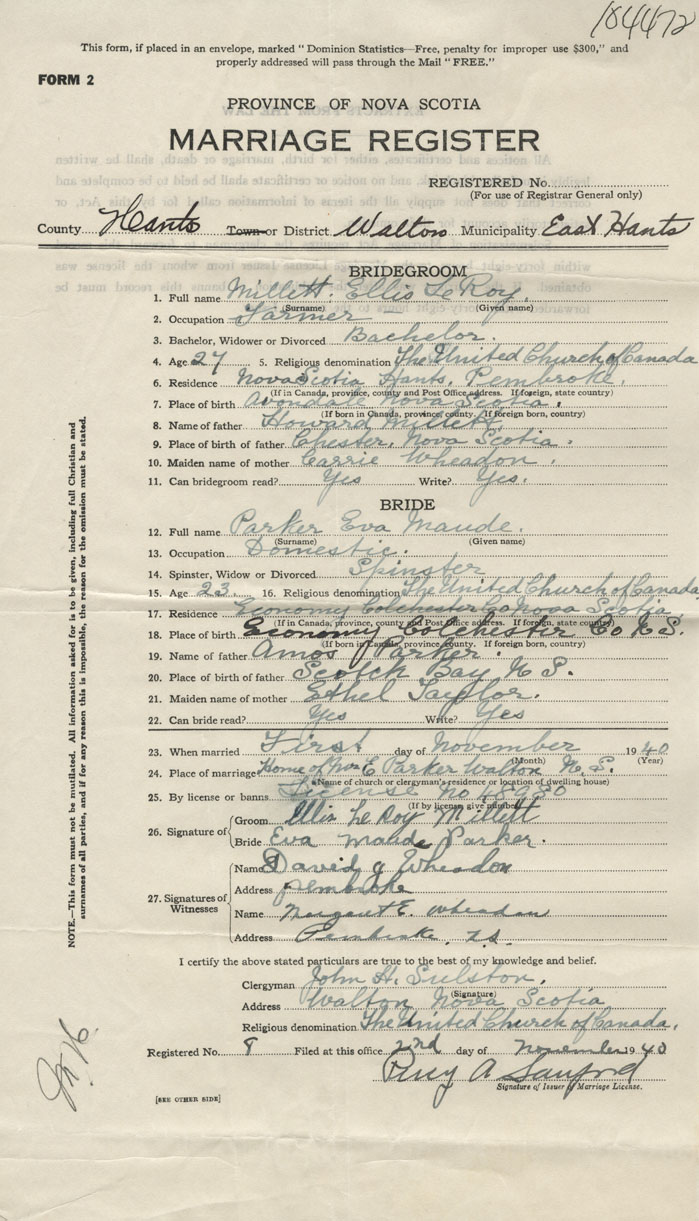 104472
This form, if placed in an envelope, marked "Dominion Statistics—Free, penalty for improper use $300," and
properly addressed will pass through the Mail "FREE."
FORM 2
PROVINCE OF NOVA SCOTIA
MARRIAGE REGISTER
REGISTERED No.
(For use of Registrar General only)
County Hants Town or District Walton Municipality East Hants
BRIDEGROOM
1. Full name Millett. Ellis LeRoy.
(Surname) (Given name)
2. Occupation Farmer
3. Bachelor, Widower or Divorced Bachelor.
4. Age 27 5. Religious denomination The United Church of Canada
6. Residence Nova Scotia Hants, Pembroke.
(If in Canada, province, county and Post Office address. If foreign, state country)
7. Place of birth Avondale Nova Scotia.
(If born in Canada, province, county. If foreign born, country)
8. Name of father Howard Millett
9. Place of birth of father Chester, Nova Scotia.
10. Maiden name of mother Carrie Wheadon.
11. Can bridegroom read? Yes Write? Yes.
BRIDE
12. Full name Parker Eva Maude.
(Surname) (Given name)
13. Occupation Domestic.
14. Spinster, Widow or Divorced Spinster
15. Age 23. 16. Religious denomination The United Church of Canada
17. Residence Economy Colchester Co Nova Scotia
(If in Canada, province, county and Post Office address. If foreign, state country)
18. Place of birth Economy Colchester Co N.S.
(If born in Canada, province, county. If foreign born, country)
19. Name of father Amos Parker.
20. Place of birth of father Scotch Bay N S.
21. Maiden name of mother Ethel Taylor.
22. Can bride read? Yes Write? Yes
23. When married First day of November 1940
(Month) (Year)
24. Place of marriage Home of E Parker Walton N. S.
(Name of church or clergyman's residence or location of dwelling house)
25. By license or banns License No 48980
(If by license give number)
26. Signature of Groom Ellis Le Roy Millett
Bride Eva Maude Parker.
27. Signatures of Witnesses
Name David J Wheadon
Address Pembroke
Name Margaret E. Wheadon
Address Pembroke, N.S.
I certify the above stated particulars are true to the best of my knowledge and belief.
Clergyman John H. Sulston.
(Signature)
Address Walton Nova Scotia
Religious denomination The United Church of Canada.
Registered No. 8 Filed at this office 2nd day of November 1940
Percy A Sanford
Signature of Issuer of Marriage License.
[SEE OTHER SIDE]
NOTE.—This form must not be mutilated. All information asked for is to be given, including full Christian and
surnames of all parties, and if for any reason this is impossible, the reason for the omission must be stated.